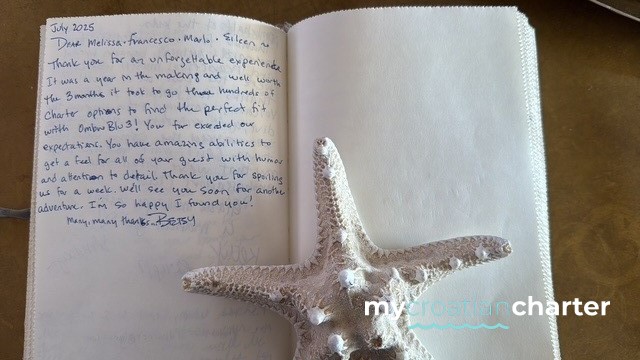 July 2025
Dear Melissa · Francesco · Mario · Eileen
Thank you for an unforgettable experience
It was a year in the making and well worth
the 3 months it took to go through hundreds of
Charter options to find the perfect fit
with OmbreBlu3! You far exceeded our
expectations. You have amazing abilities to
get a feel for all of your guest with humor
and attention to detail. Thank you for spoiling
us for a week. We'll see you soon for another
adventure. I'm so happy I found you!
Many, many thanks... BETSY
mycroatiancharter